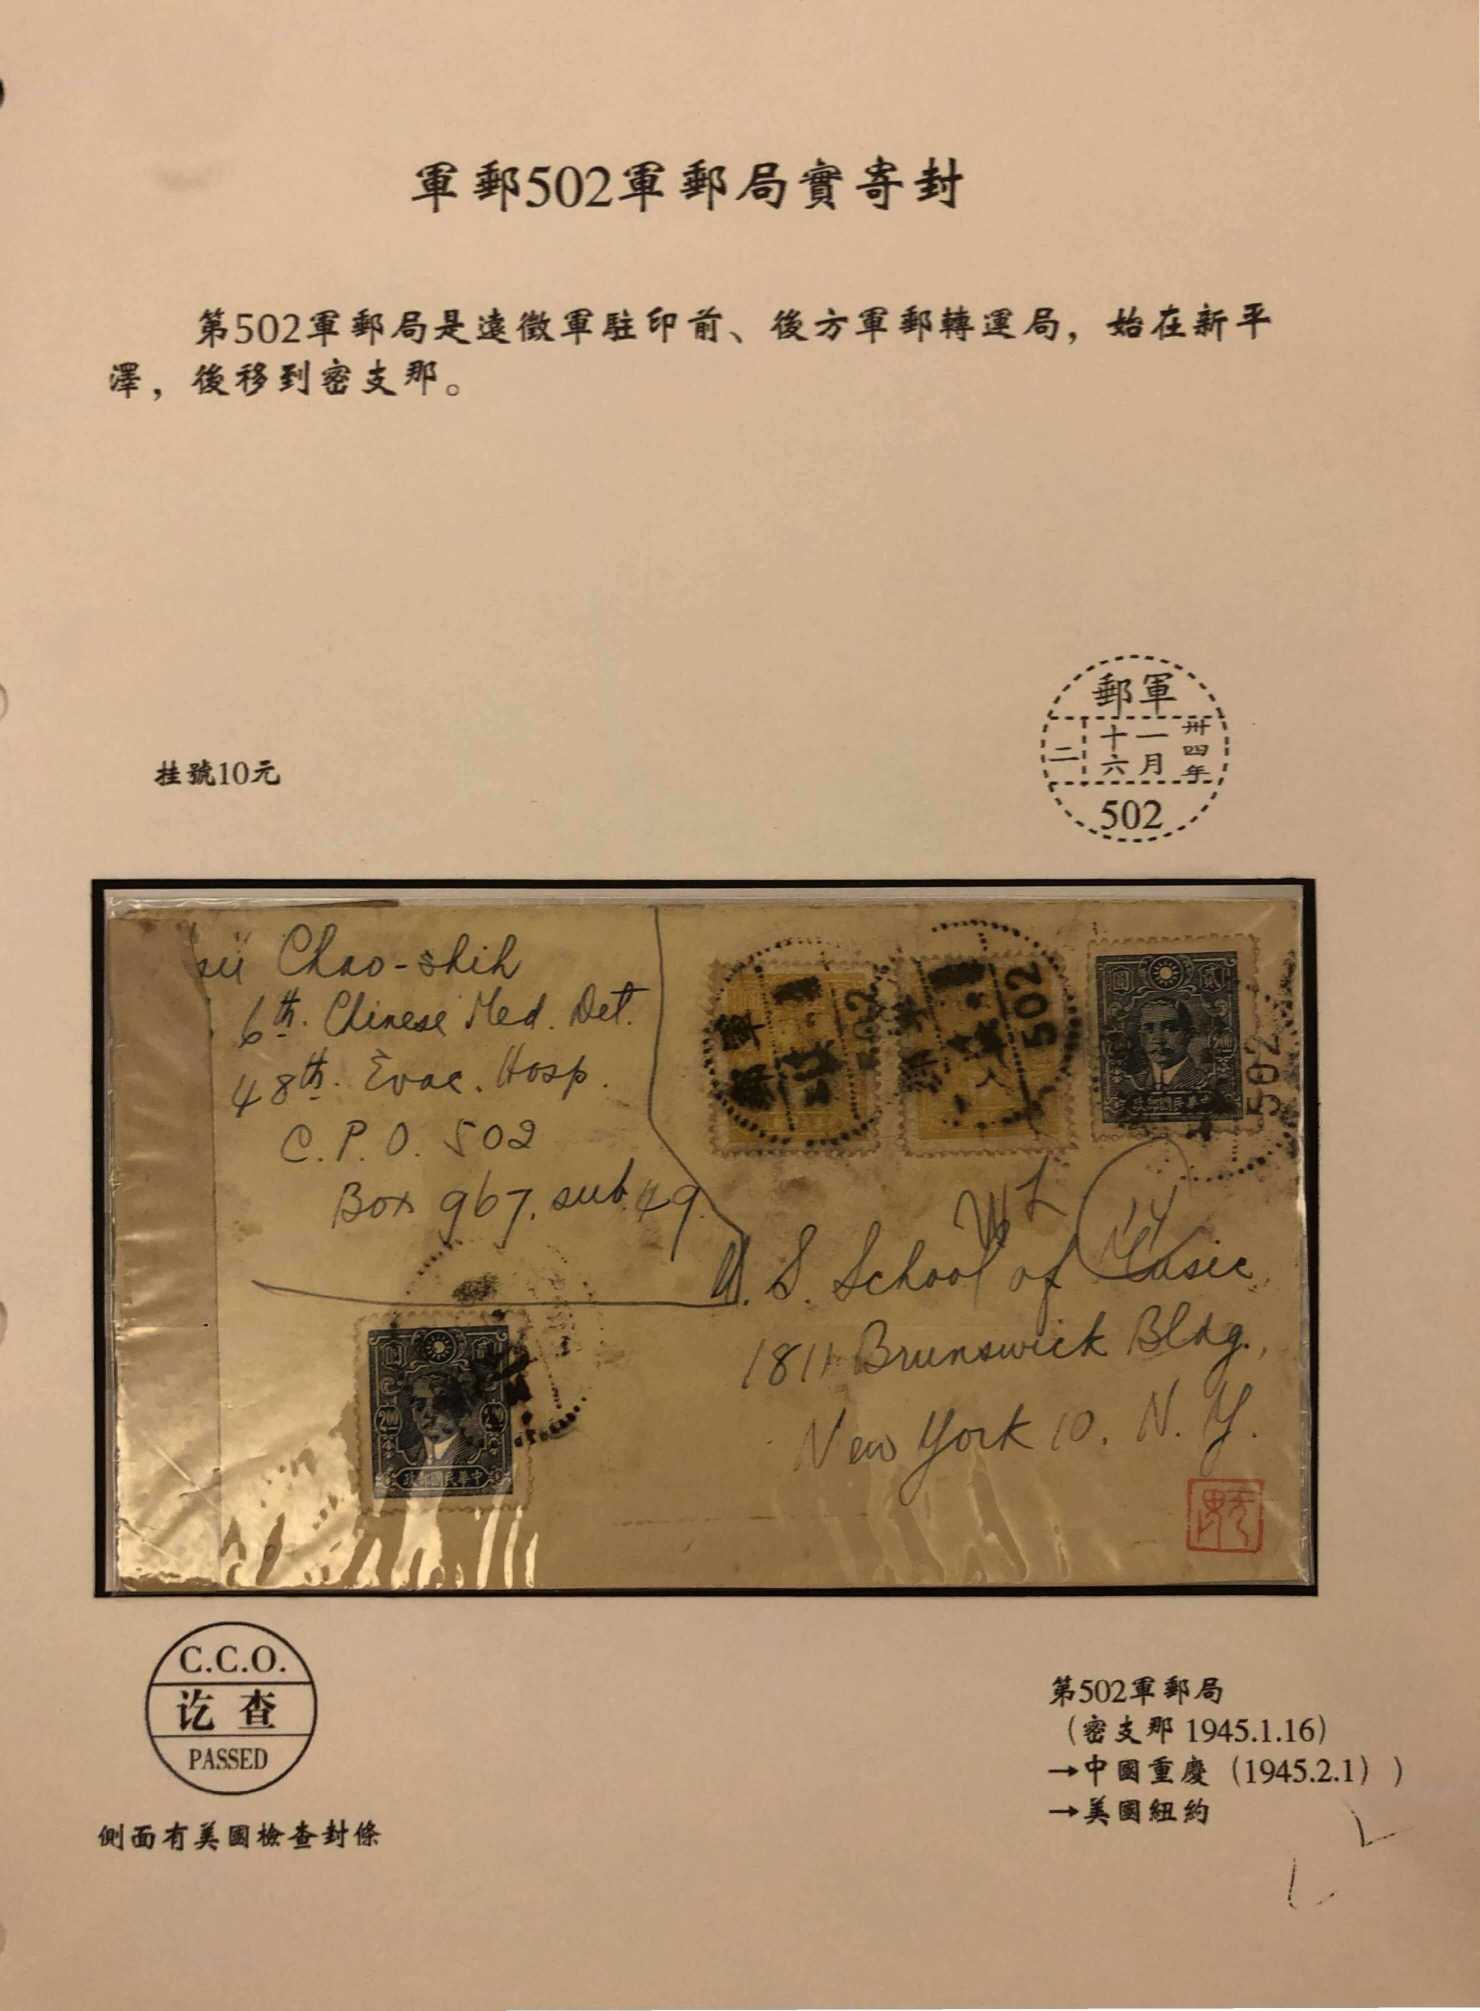 軍郵502軍郵局實寄封
第502軍郵局是遠徵軍駐印前、後方軍郵轉運局，始在新平
澤，後移到密支那。
挂號10元
郵軍
卅四年
一月
十六
二
502
Chao-shih
6th. Chinese Med. Det.
48th. Evac. Hosp.
C.P.O. 502
Box 967, sub. 49.
502
502
502
圓 貳
200
中華民國郵政
圓 貳
200 200
中華民國郵政
14
U.S. School of Music,
1811 Brunswick Bldg.,
New York 10. N.Y.
C.C.O.
讫查
PASSED
側面有美國檢查封條
第502軍郵局
（密支那 1945.1.16）
→中國重慶（1945.2.1））
→美國紐約